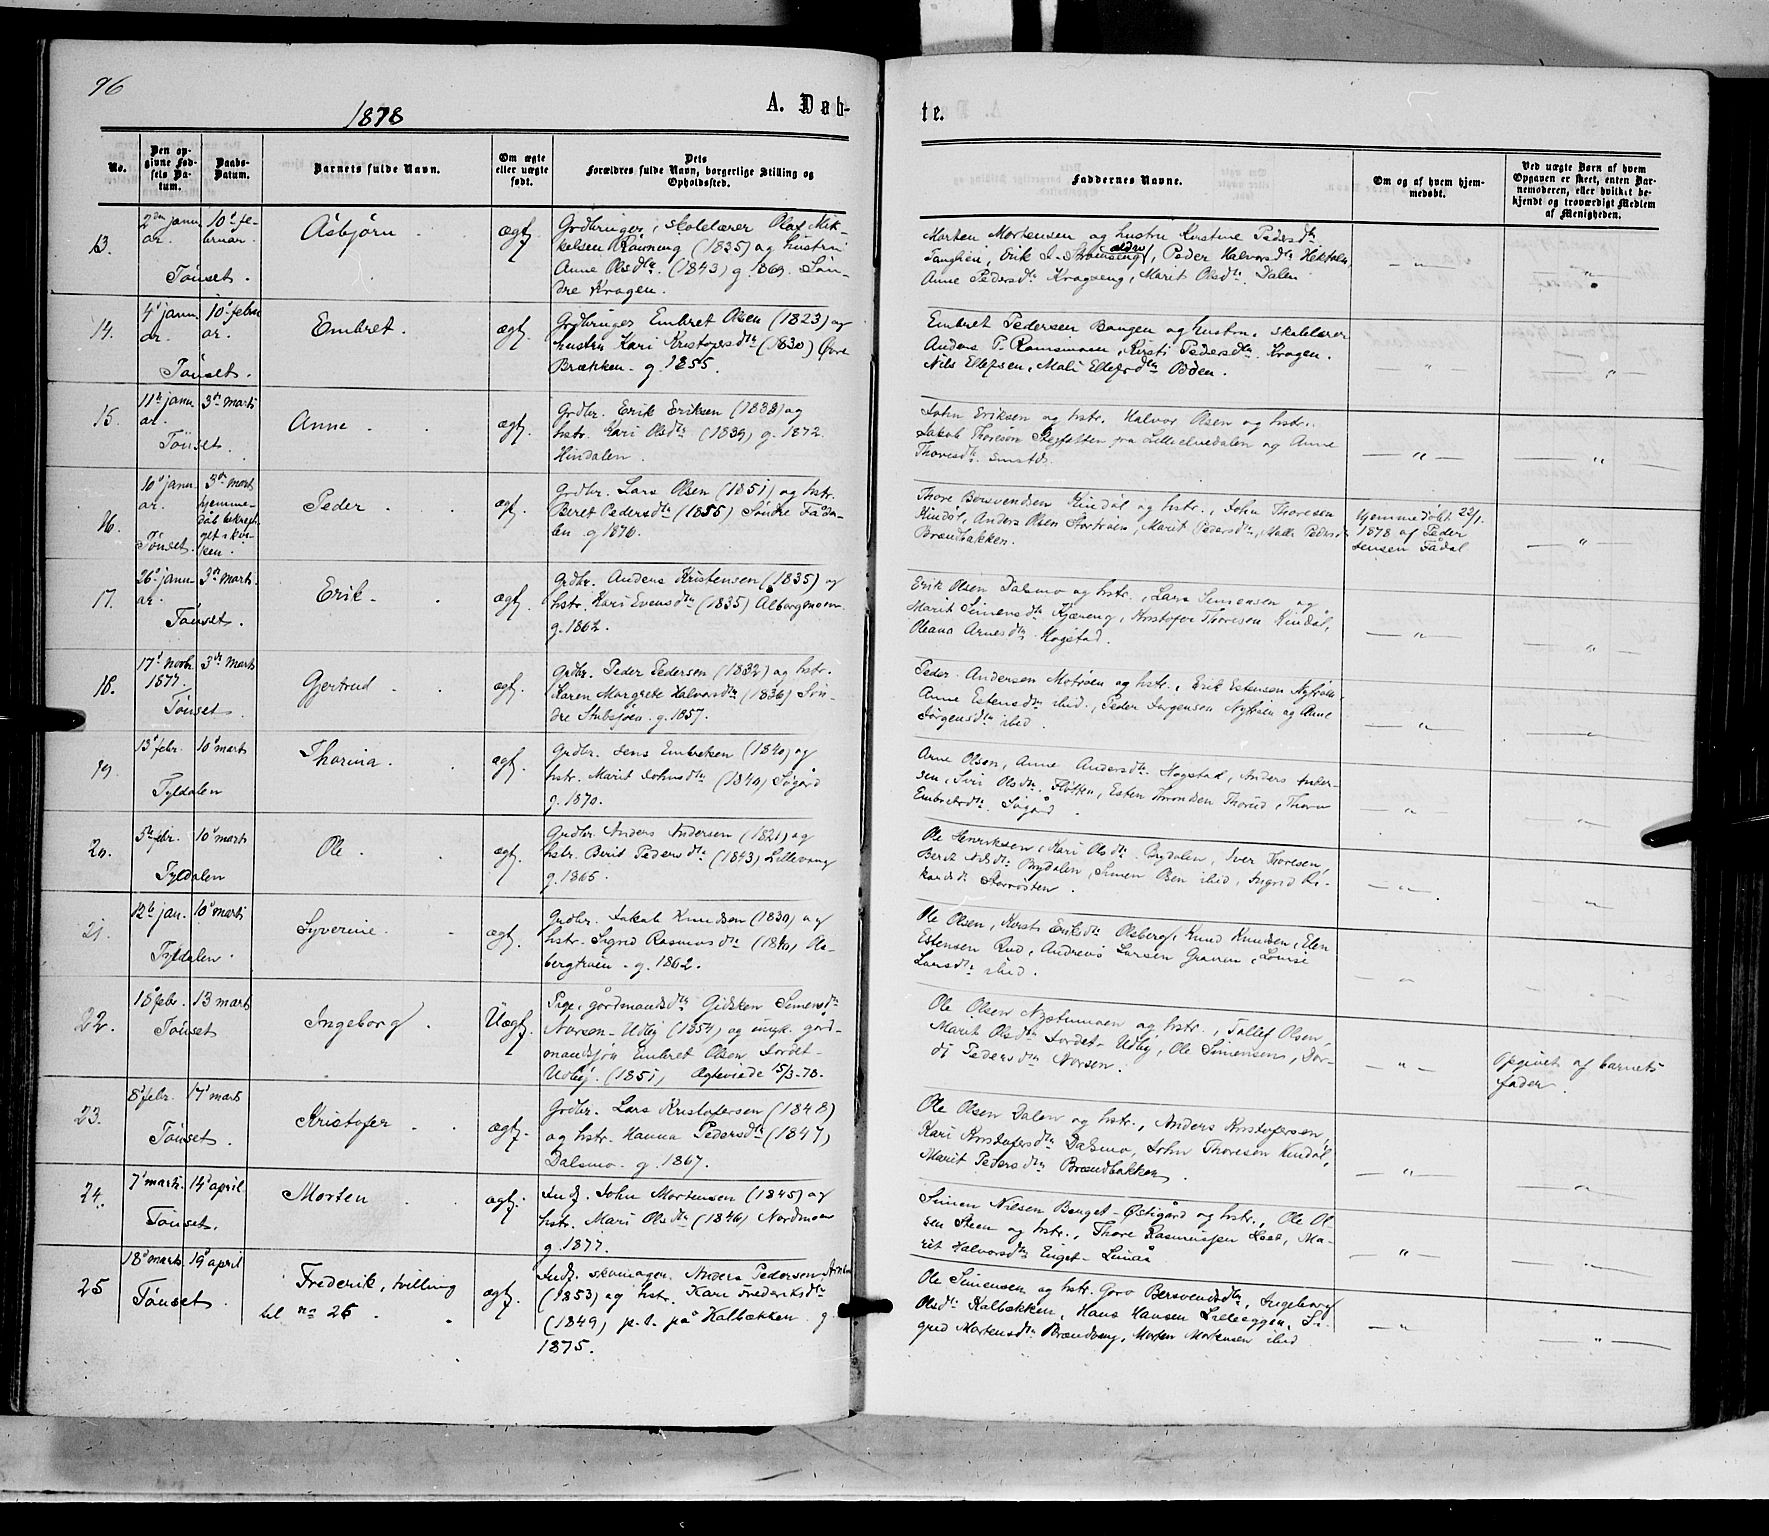 96
1878
A. Døb-
te.
No.
Den op-
givne Fød-
sels Da-
tum.
Daabs-
Datum.
Barnets fulde Navn.
Om ægte
eller uægte
født.
Dets
Forældres fulde Navn, borgerlige Stilling og
Opholdssted.
Faddernes Navne.
Om og af hvem hjem-
medøbt.
Ved uægte Børn af hvem
Opgaven er skeet, enten Bar-
nemoderen, eller hvilket be-
kjendt og troværdigt Medlem
af Menigheden.
13.
2den janu-
ar.
Tönset.
10d fe-
bruar.
Asbjörn
ægt.
Grdbruger, skolelærer Olaf Mik-
kelsen Rövning (1835) og hustru
Anne Olsdtr (1843) g 1869. Søn-
dre Kragen.
Morten Mortensen og hustru Kirstine Pedersdtr
Tanghien, Erik J. Strömseng ældre, Peder Halvorsdtr
Anne Pedersdtr Kragseng, Marit Olsdtr Dalen
14.
4d janu-
ar.
Tönset.
10d febru-
ar.
Embret.
ægt.
Grdbruger Embret Olsen (1823) og
hustru Kari Kristofersdtr (1830) Øvre
Brækken. g. 1855.
Embret Pedersen Bangen og hustru, skolelærer
Anders P. Ramsmoen, Kirsti Pedersdtr Kragen.
Nils Ellefsen, Mali Ellefsdtr Bden.
15.
11te janu-
ar.
Tönset.
3de marts
Anne
ægt.
Grdbr. Erik Eriksen (1838) og
hstr. Kari Olsdtr (1839) g. 1872.
Hindalen.
John Eriksen og hstr. Halvor Olsen og hstr.
Jakob Thoresen fra Lilleelvedalen og Anne
Thoresdtr smstds.
16.
10d janu-
ar.
Tönset.
3de marts
hjemme-
dåb bekræf-
get i kir-
ken.
Peder
ægt.
Grdbr. Lars Olsen (1851) og hstr.
Beret Pedersdtr (1855) Söndre Fåda-
len g 1876.
Thore Bersvendsen Kindöl og hstr., John Thoresen
Kindöl, Anders Olsen Stortröen, Marit Pedersdtr, Malli Pedersdtr
Brændbakken.
Hjemmedöbt 22/1
1878 af Peder
Jensen Fådal
17.
26d janu-
ar.
Tönset.
3de marts.
Erik.
ægt.
Grdbr. Anders Kristensen (1835) og
hstr. Kari Evensdtr (1835) Alborgmoen.
g. 1862.
Erik Olsen Dalsmo og hstr., Lars Simensen og
Marit Simensdtr Kjæreng, Kristofer Thoresen Kindöl,
Oleana Arnesdtr Hogstad.
18.
17d novbr.
1877.
Tönset.
3de marts
Gjertrud
ægt.
Grdbr. Peder Pedersen (1832) og hstr.
Karen Margrete Halvorsdtr (1836) Søn-
dre Stubsjöen. g. 1857.
Peder Andersen Motröen og hstr., Erik Estensen Nytröen
Anne Estensdtr ibid., Peder Jørgensen Nytröen og Anne
Jørgensdtr ibid.
19.
13d febr.
Tyldalen
10d marts
Thorina.
ægt.
Grdbr. Jens Embretsen (1840) og
hstr. Marit Johnsdtr (1840) Sögård
g. 1870.
Arne Olsen, Anne Andersdtr Hogstad, Anders Ander-
sen, Siri Olsdtr Flötten, Esten Throndsen Thorud, Thora
Embretsdtr Sögård.
20.
5te febr.
Tyldalen
10d marts
Ole
ægt.
Grdbr. Anders Andersen (1821) og
hstr. Berit Pedersdtr (1843) Lillevang
g. 1865.
Ole Henriksen, Kari Olsdtr Brydalen, Iver Thoresen,
Beret Nilsdtr Brydalen, Simen Olsen ibid, Ingrid Ri-
kardsdtr Storrösten.
21.
12te jan.
Tyldalen.
10d marts
Syverine.
ægt.
Grdbr. Jakob Knudsen (1830) og
hstr. Sigrid Rasmusdtr (1840) Os-
bergtröen. g. 1862.
Ole Olsen, Kersti Eriksdtr Osberg, Knud Knudsen, Elen
Estensen Rud, Andreas Larsen Graven, Lovise
Larsdtr ibid.
22.
18d febr.
Tönset
13 marts
Ingeborg.
Uægt.
Pige, gårdmandsdtr Gidsken Simensdtr
Norsen-Udby (1854) og ungk. gård-
mandssön Embret Olsen Jordet-
Udby. (1851) Ægteviede 15/3-78.
Ole Olsen Nystumoen og hstr., Tollef Olsen,
Marit Olsdtr Jordet-Udby, Ole Simensens, Dor-
di Pedersdtr Norsen.
Opgivet af barnets
fader.
23.
8d febr.
Tönset.
17d marts
Kristofer
ægt.
Grdbr. Lars Kristofersen (1848)
og hstr. Hanna Pedersdtr (1847)
Dalsmo. g. 1867.
Ole Olsen Dalen og hstr., Anders Kristofersen,
Kari Kristofersdtr Dalsmo, John Thoresen Kindöl,
Marit Pedersdtr Brændbakken.
24.
7d marts.
Tönset.
14d april
Morten
ægt.
Indf. John Mortensen (1845) og
hstr. Mari Olsdtr (1846) Nordmoen
g. 1877.
Simen Nilsen Bauget-Østigård og hstr., Ole Ol-
sen Steen og hstr., Thore Rasmussen Lset, Ma-
rit Halvorsdtr Enget-Lunaas.
25
18d marts
Tönset.
19d april
Frederik, tvilling
til no 26
ægt.
Indf. skomager Anders Pedersen
(1853) og hstr. Kari Frederiksdtr
(1849) p. t. på Kalbækken g.
1875.
Ole Simensen og hstr. Goro Bersvendsdtr, Ingeborg
Olsdtr Kalbækken, Hans Hansen Lilleeggen, Si-
grid Mortensdtr Brændvang, Morten Mortensen ibid